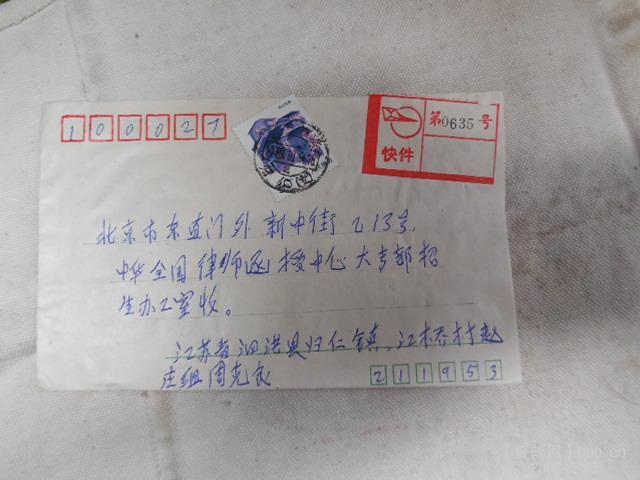 100027
第0635号
快件
北京市东直门外新中街乙13号,
中华全国律师函授中心大专部招
生办工室收。
江苏省泗洪县归仁镇,江桥村赵
庄组周克良
211953